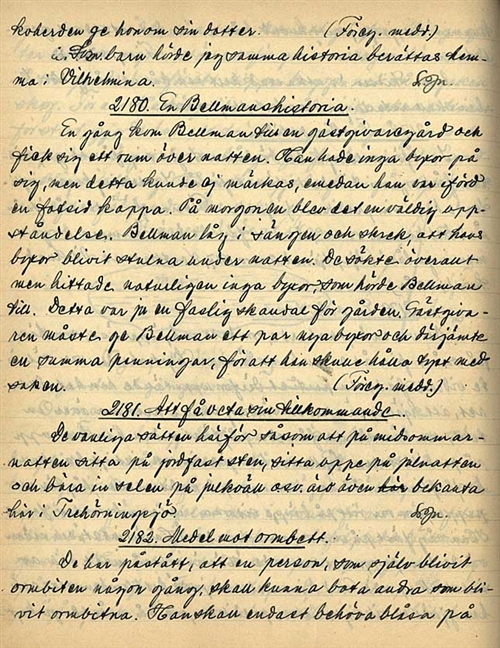 koherden ge honom sin dotter. (Föreg. medd.)
i. Som barn hörde jag samma historia berättas hem-
ma i Vilhelmina.
2180. En Bellmanshistoria
En gång kom Bellman till en gästgivaregård och
fick sig ett rum över natten. Han hade inga byxor på
sig, men detta kunde ej märkas, emedan han var iförd
en fotsid kappa. På morgonen blev det en väldig upp-
ståndelse. Bellman låg i sängen och skrek, att hans
byxor blivit stulna under natten. De sökte överallt
men hittade naturligen inga byxor som hörde Bellman
till. Detta var ju en faslig skandal för gården. Gästgiva-
ren måste ge Bellman ett par nya byxor och därjämte
en summa penningar, för att han skulle hålla tyst med
saken. (Föreg. medd.)
2181. Att få veta sin tillkommande.
De vanliga sätten härför såsom att på midsommar-
natten sitta på jordfast sten, sitta oppe på julnatten
och bära in selen på julkväll osv. äro även bekanta
här i Trehörningsjö.
2182. Medel mot ormbett.
De har påstått, att en person, som själv blivit
ormbiten någon gång, skall kunna bota andra som bli-
vit ormbitna. Han skall endast behöva blåsa på